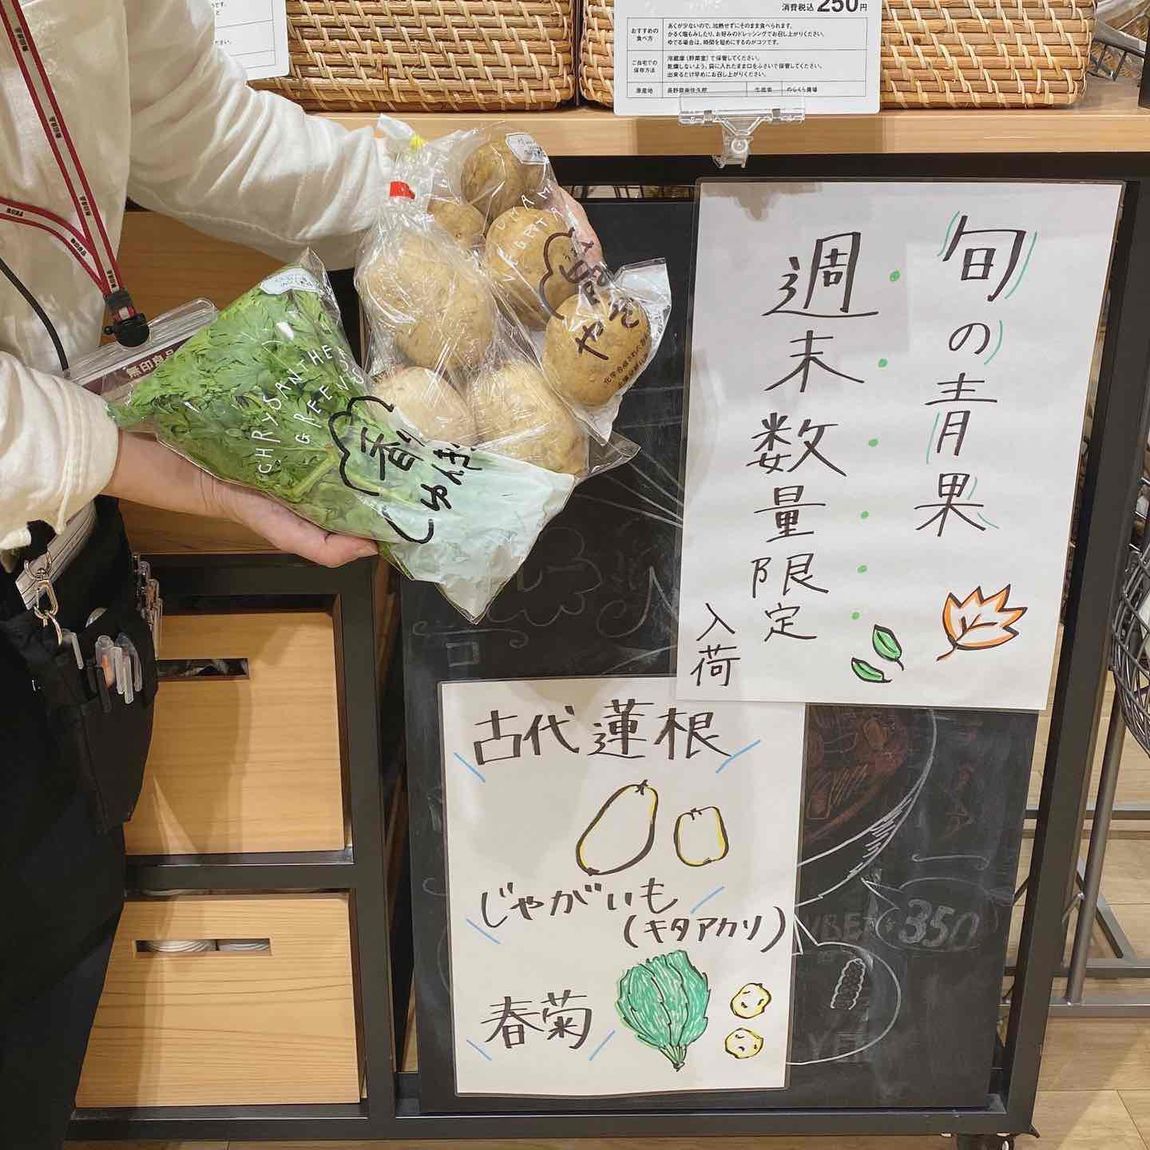 消費税込 250円
おすすめの
食べ方
あくが少ないので、加熱せずにそのまま食べられます。
かるく塩もみしたり、お好みのドレッシングでお召し上がりください。
ゆでる場合は、時間を短めにするのがコツです。
ご自宅での
保存方法
冷蔵庫(野菜室)で保管してください。
乾燥しないよう、袋に入れたまま口をふさいで保管してください。
出来るだけ早めにお召し上がりください。
原産地
長野県南佐久郡
生産者
のらくら農場
旬の青果
週末数量限定
入荷
古代蓮根
じゃがいも
(キタアカリ)
春菊
CHRYSANTHE
GREENS
香り
しゅんぎ
無印良品
350